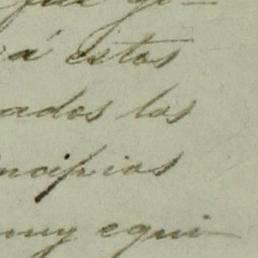 rá éstos
ados los
ncipios
muy equi-